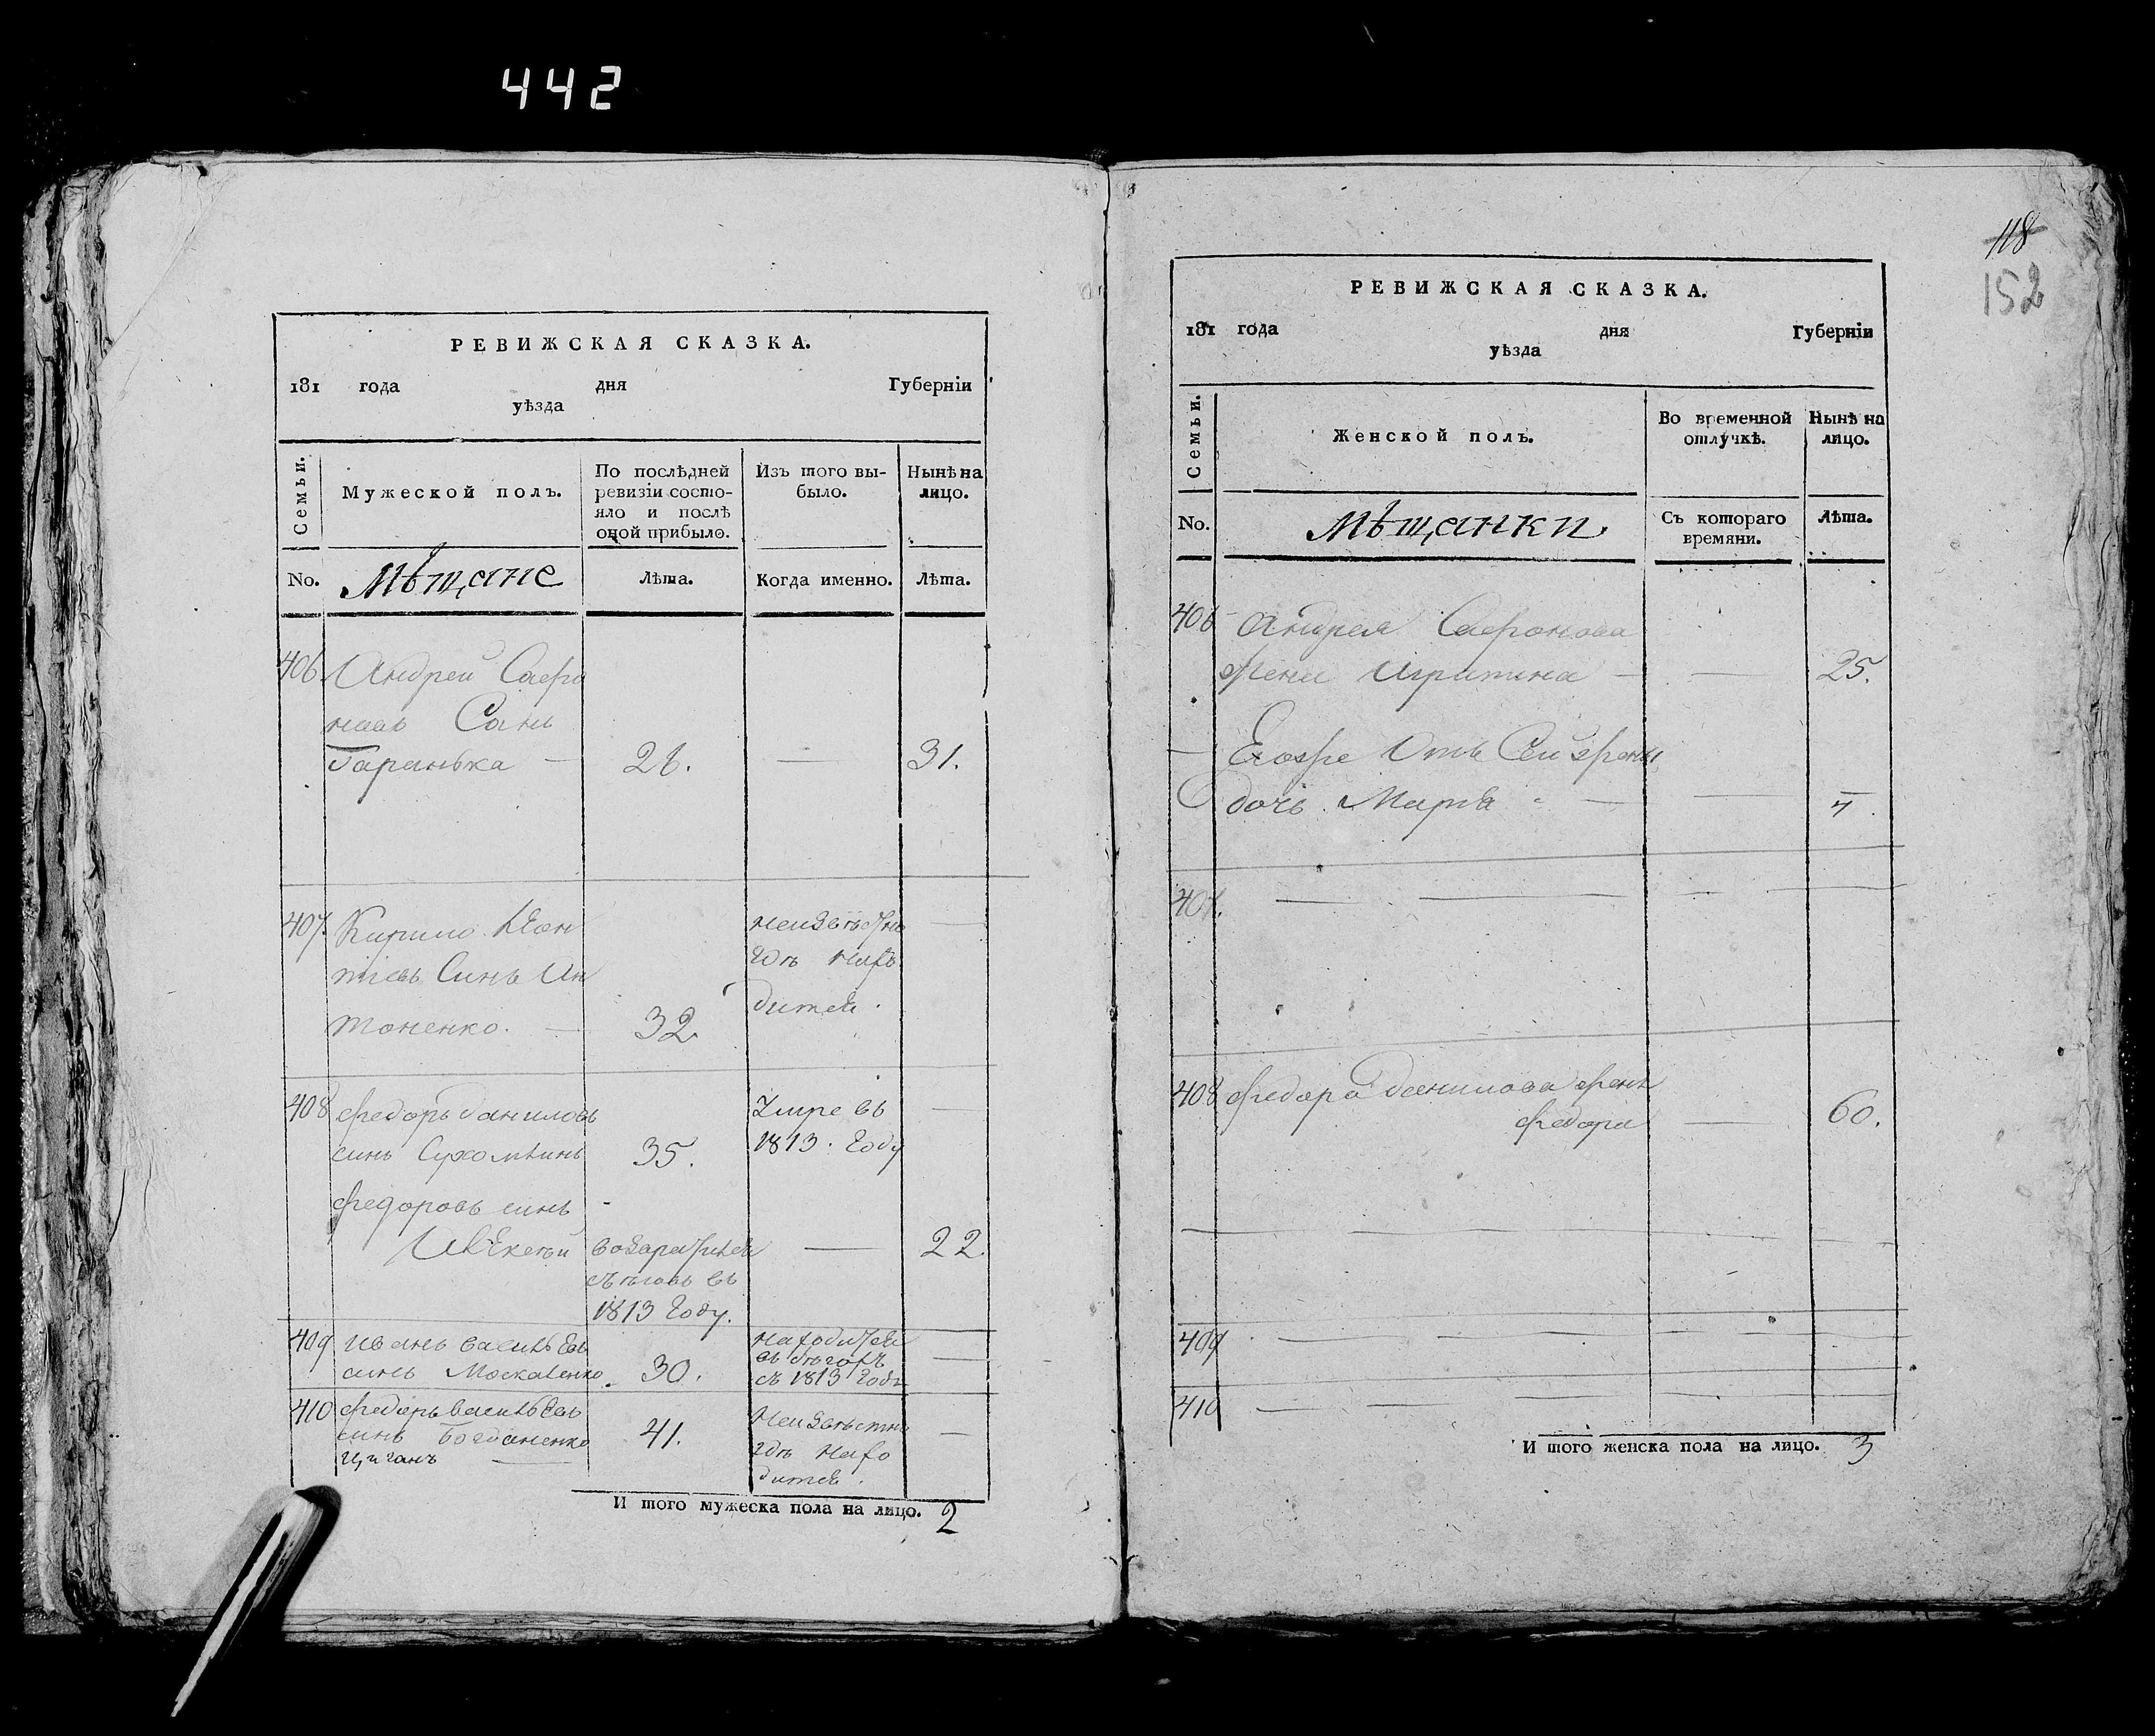 442
РЕВИЖСКАЯ СКАЗКА.
181 года дня Губерніи
уѣзда
Семьи.
Мужеской полъ.
По послѣдней ревизіи состо-
яло и послѣ оной прибыло.
Изъ того вы-
было.
Нынѣ на лицо.
No. Мѣщане Лѣта. Когда именно. Лѣта.
406. Андрей Сафро
новъ Синъ
Гаранька — 26. — 31.
407. Кирило Леон
тіевъ Синъ Ан
тоненко. — 32
неизвѣстно
гдѣ нахо
дится. —
408 Федоръ Даниловъ
синъ Сухомлинъ 35.
Умре въ
1813. Году —
Федоровъ синъ -
Алексѣй
въ
1813 Году.
— 22.
409 Иванъ Васильевъ
синъ Москаленко. 30.
находится
въ бѣгахъ
съ 1813 Года —
410 Федоръ Васильевъ
синъ Богданенко
Циганъ — 41.
Неизвѣстно
гдѣ нахо
дится. —
И того мужеска пола на лицо. 2
118
152
РЕВИЖСКАЯ СКАЗКА.
181 года дня Губерніи
уѣзда
Семьи.
Женской полъ.
Во временной
отлучкѣ.
Нынѣ на
лицо.
No. Мѣщанки.
Съ котораго
времяни.
Лѣта.
406 Андрея Сафронова
жена — — 25.
Егоже Отъ Сей жены
дочь Марія — — 7.
407.
408 Федора Данилова жена
Федора — 60.
409
410
И того женска пола на лицо. 3